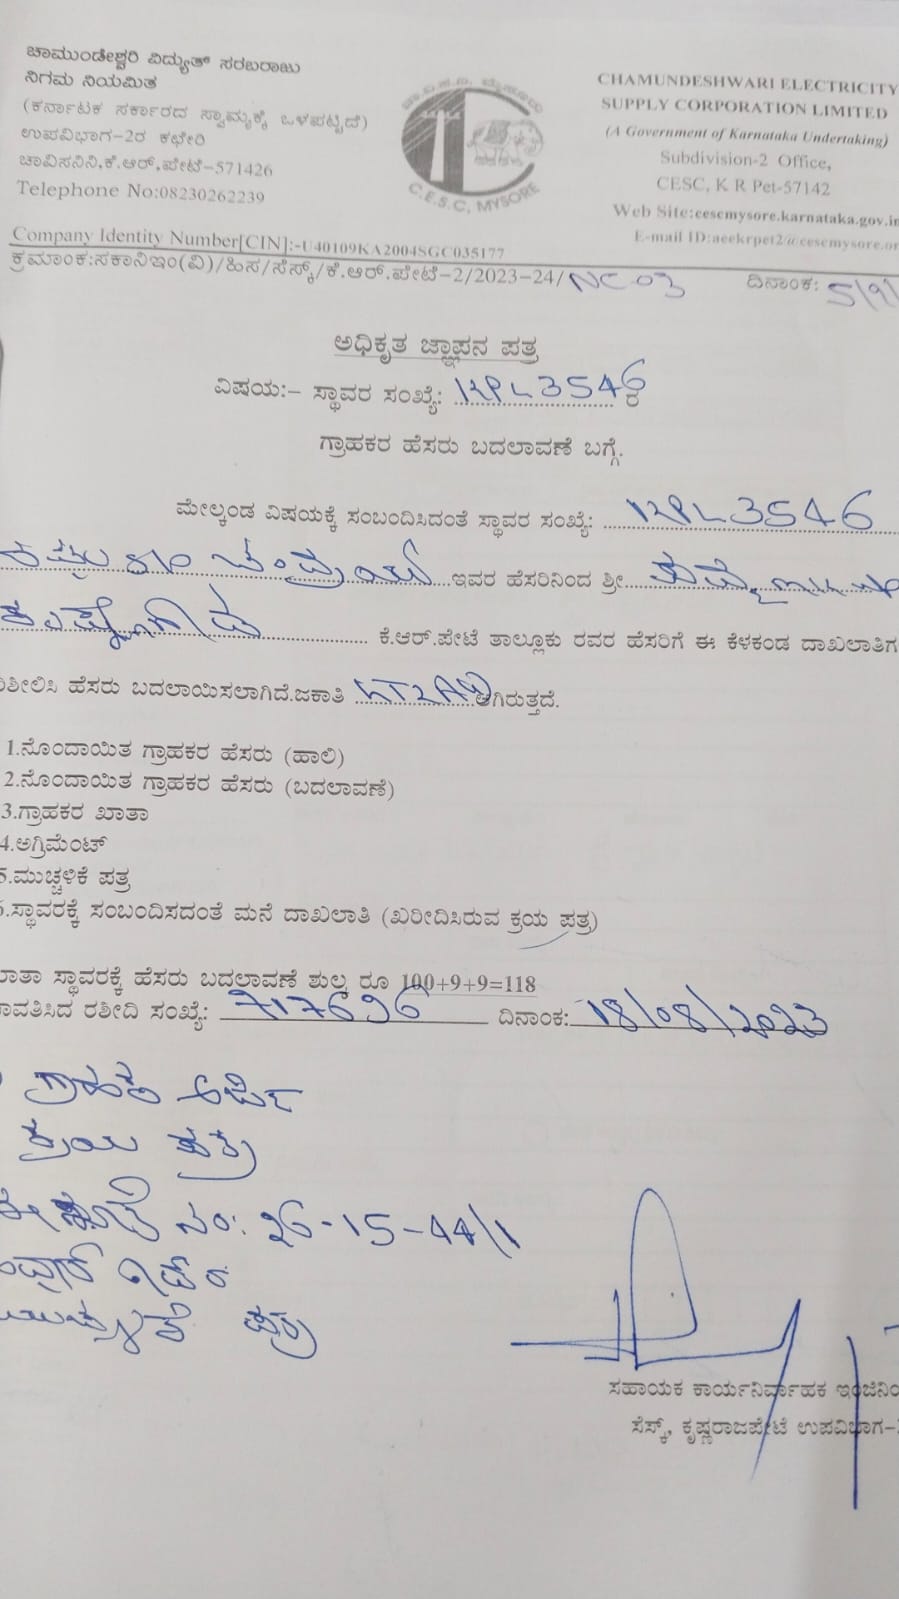 ಚಾಮುಂಡೇಶ್ವರಿ ವಿದ್ಯುತ್ ಸರಬರಾಜು
ನಿಗಮ ನಿಯಮಿತ
(ಕರ್ನಾಟಕ ಸರ್ಕಾರದ ಸ್ವಾಮ್ಯಕ್ಕೆ ಒಳಪಟ್ಟಿದೆ)
ಉಪವಿಭಾಗ-2ರ ಕಛೇರಿ
ಚಾವಿಸನಿನಿ,ಕೆ.ಆರ್.ಪೇಟೆ-571426
Telephone No:08230262239
C.E.S.C, MYSORE
CHAMUNDESHWARI ELECTRICITY
SUPPLY CORPORATION LIMITED
(A Government of Karnataka Undertaking)
Subdivision-2 Office,
CESC, K R Pet-57142
Web Site:cescmysore.karnataka.gov.in
E-mail ID:aeekrpet2@cescmysore.or
Company Identity Number[CIN]:-U40109KA2004SGC035177
ಕ್ರಮಾಂಕ:ಸಕಾನಿಇಂ(ವಿ)/ಹಿಸ/ಸೆಸ್ಕ್/ಕೆ.ಆರ್.ಪೇಟೆ-2/2023-24/NC-03 ದಿನಾಂಕ: 5/9/
ಅಧಿಕೃತ ಜ್ಞಾಪನ ಪತ್ರ
ವಿಷಯ:- ಸ್ಥಾವರ ಸಂಖ್ಯೆ: KPL3546ರ
ಗ್ರಾಹಕರ ಹೆಸರು ಬದಲಾವಣೆ ಬಗ್ಗೆ.
ಮೇಲ್ಕಂಡ ವಿಷಯಕ್ಕೆ ಸಂಬಂದಿಸಿದಂತೆ ಸ್ಥಾವರ ಸಂಖ್ಯೆ: KPL3546
ಇವರ ಹೆಸರಿನಿಂದ ಶ್ರೀ
ಕೆ.ಆರ್.ಪೇಟೆ ತಾಲ್ಲೂಕು ರವರ ಹೆಸರಿಗೆ ಈ ಕೆಳಕಂಡ ದಾಖಲಾತಿಗ
ರಿಶೀಲಿಸಿ ಹೆಸರು ಬದಲಾಯಿಸಲಾಗಿದೆ.ಜಕಾತಿ ಆಗಿರುತ್ತದೆ.
1.ನೊಂದಾಯಿತ ಗ್ರಾಹಕರ ಹೆಸರು (ಹಾಲಿ)
2.ನೊಂದಾಯಿತ ಗ್ರಾಹಕರ ಹೆಸರು (ಬದಲಾವಣೆ)
3.ಗ್ರಾಹಕರ ಖಾತಾ
4.ಅಗ್ರಿಮೆಂಟ್
5.ಮುಚ್ಚಳಿಕೆ ಪತ್ರ
6.ಸ್ಥಾವರಕ್ಕೆ ಸಂಬಂದಿಸದಂತೆ ಮನೆ ದಾಖಲಾತಿ (ಖರೀದಿಸಿರುವ ಕ್ರಯ ಪತ್ರ)
ಖಾತಾ ಸ್ಥಾವರಕ್ಕೆ ಹೆಸರು ಬದಲಾವಣೆ ಶುಲ್ಕ ರೂ 100+9+9=118
ಪಾವತಿಸಿದ ರಶೀದಿ ಸಂಖ್ಯೆ: 717696 ದಿನಾಂಕ: 18/08/2023
ಗ್ರಾಹಕರ ಅರ್ಜಿ
ಕ್ರಯ ಪತ್ರ
ನಂ: 26-15-44/1
ಪತ್ರ
ಸಹಾಯಕ ಕಾರ್ಯನಿರ್ವಾಹಕ ಇಂಜಿನಿಯ
ಸೆಸ್ಕ್, ಕೃಷ್ಣರಾಜಪೇಟೆ ಉಪವಿಭಾಗ-2